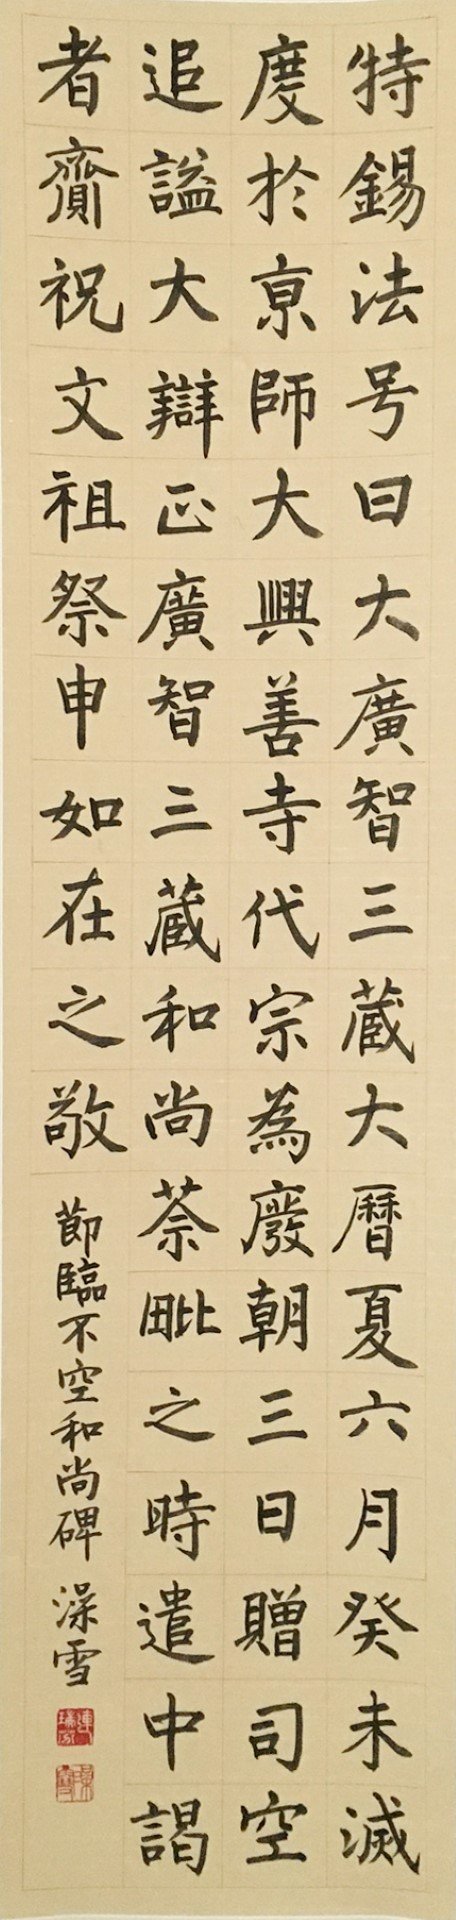 特錫法号曰大廣智三蔵大曆夏六月癸未滅
度於京師大興善寺代宗為廢朝三日贈司空
追謚大辯正廣智三蔵和尚荼毗之時遣中謁
者齎祝文祖祭申如在之敬
節臨不空和尚碑 澡雪